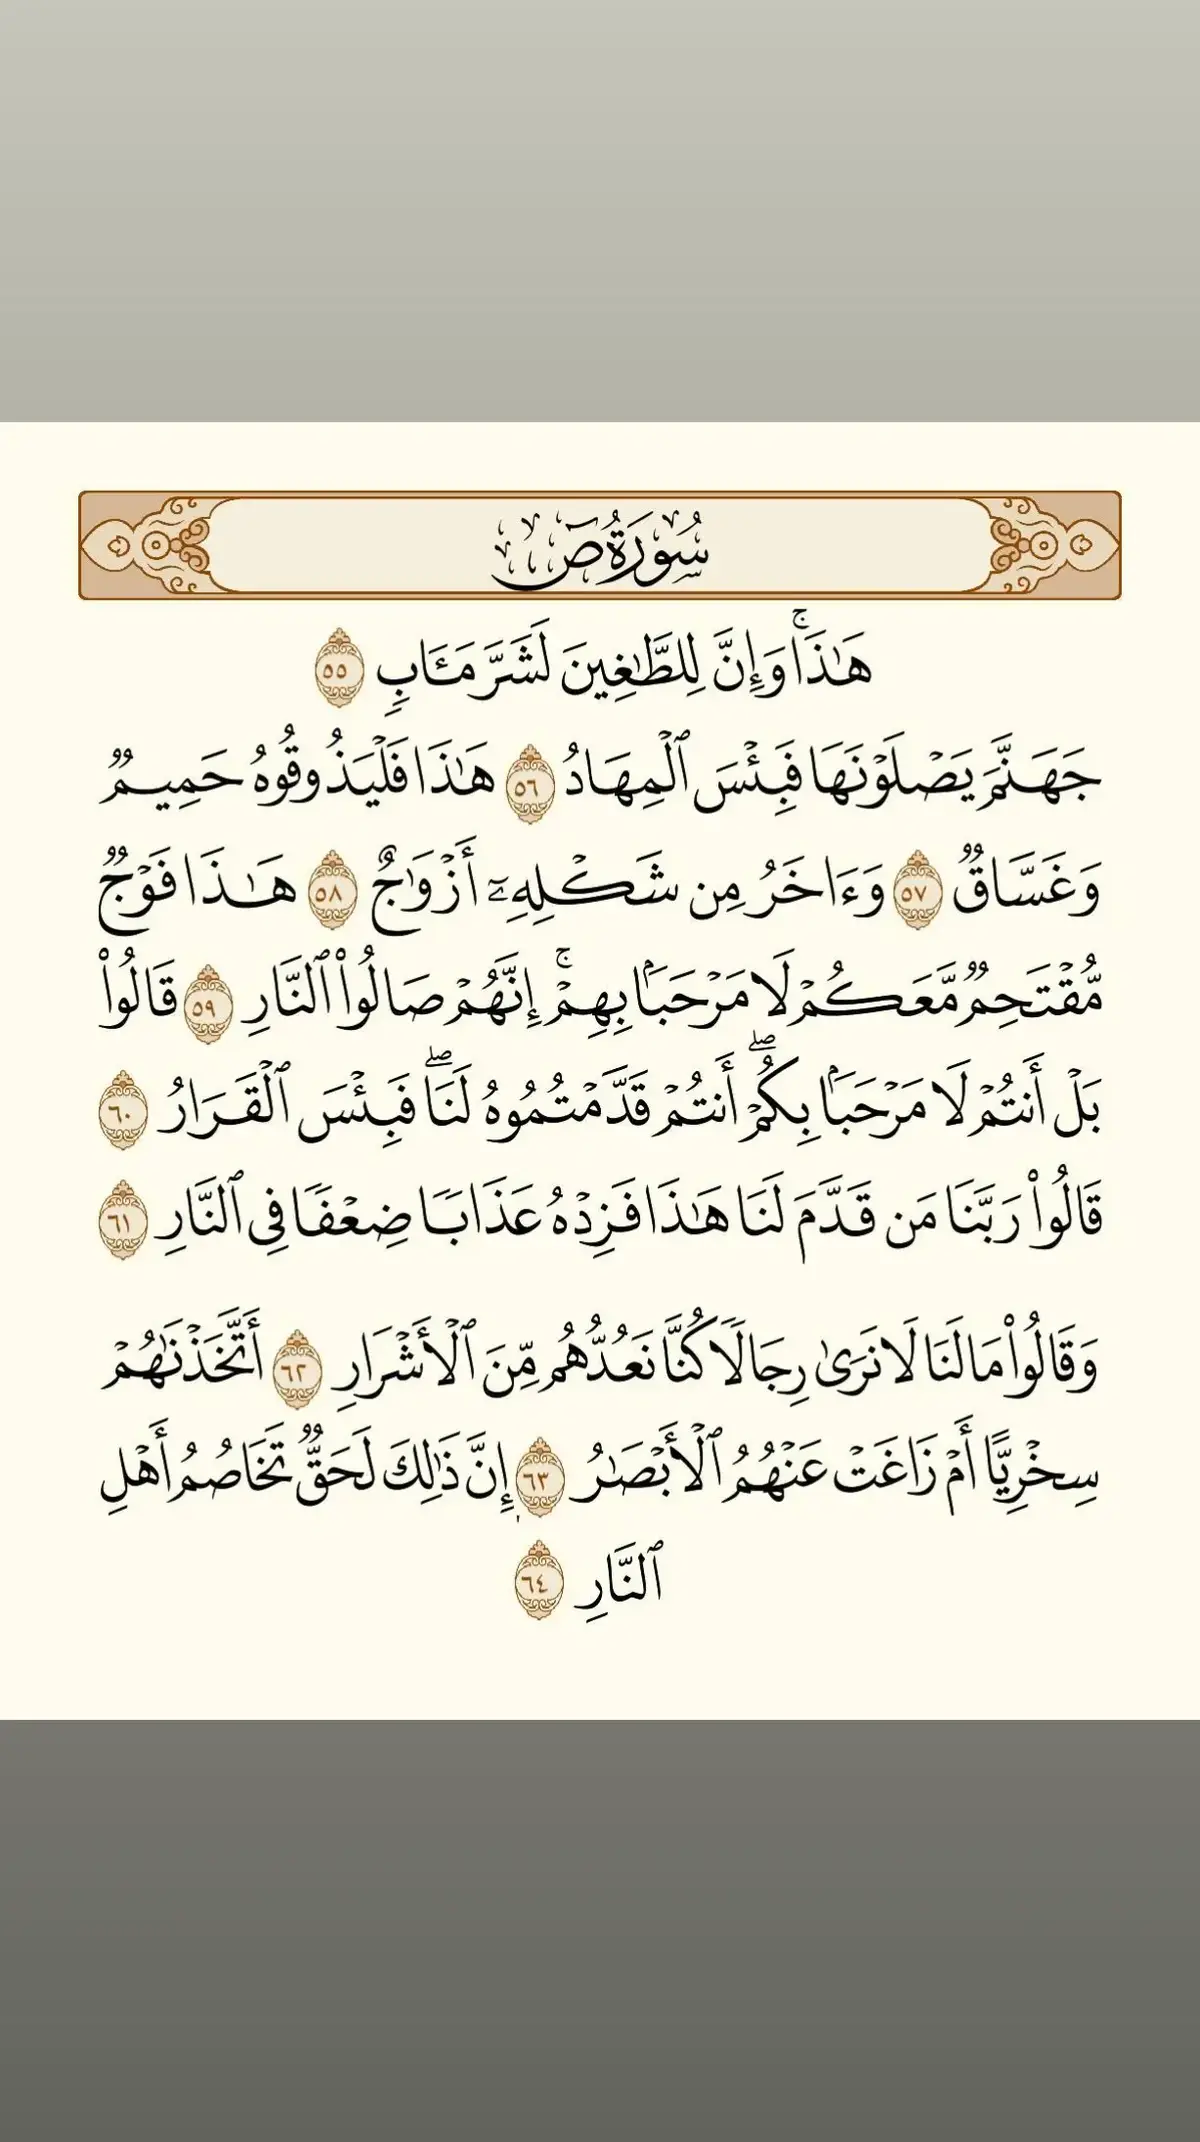 سُورَةُ صٓ
هَٰذَاۚ وَإِنَّ لِلطَّٰغِينَ لَشَرَّ مَـَٔابٖ ٥٥
جَهَنَّمَ يَصۡلَوۡنَهَا فَبِئۡسَ ٱلۡمِهَادُ ٥٦ هَٰذَا فَلۡيَذُوقُوهُ حَمِيمٞ
وَغَسَّاقٞ ٥٧ وَءَاخَرُ مِن شَكۡلِهِۦٓ أَزۡوَٰجٌ ٥٨ هَٰذَا فَوۡجٞ
مُّقۡتَحِمٞ مَّعَكُمۡ لَا مَرۡحَبَۢا بِهِمۡۚ إِنَّهُمۡ صَالُواْ ٱلنَّارِ ٥٩ قَالُواْ
بَلۡ أَنتُمۡ لَا مَرۡحَبَۢا بِكُمۡۖ أَنتُمۡ قَدَّمۡتُمُوهُ لَنَاۖ فَبِئۡسَ ٱلۡقَرَارُ ٦٠
قَالُواْ رَبَّنَا مَن قَدَّمَ لَنَا هَٰذَا فَزِدۡهُ عَذَابٗا ضِعۡفٗا فِي ٱلنَّارِ ٦١
وَقَالُواْ مَا لَنَا لَا نَرَىٰ رِجَالٗا كُنَّا نَعُدُّهُم مِّنَ ٱلۡأَشۡرَارِ ٦٢ أَتَّخَذۡنَٰهُمۡ
سِخۡرِيًّا أَمۡ زَاغَتۡ عَنۡهُمُ ٱلۡأَبۡصَٰرُ ٦٣ إِنَّ ذَٰلِكَ لَحَقّٞ تَخَاصُمُ أَهۡلِ
ٱلنَّارِ ٦٤